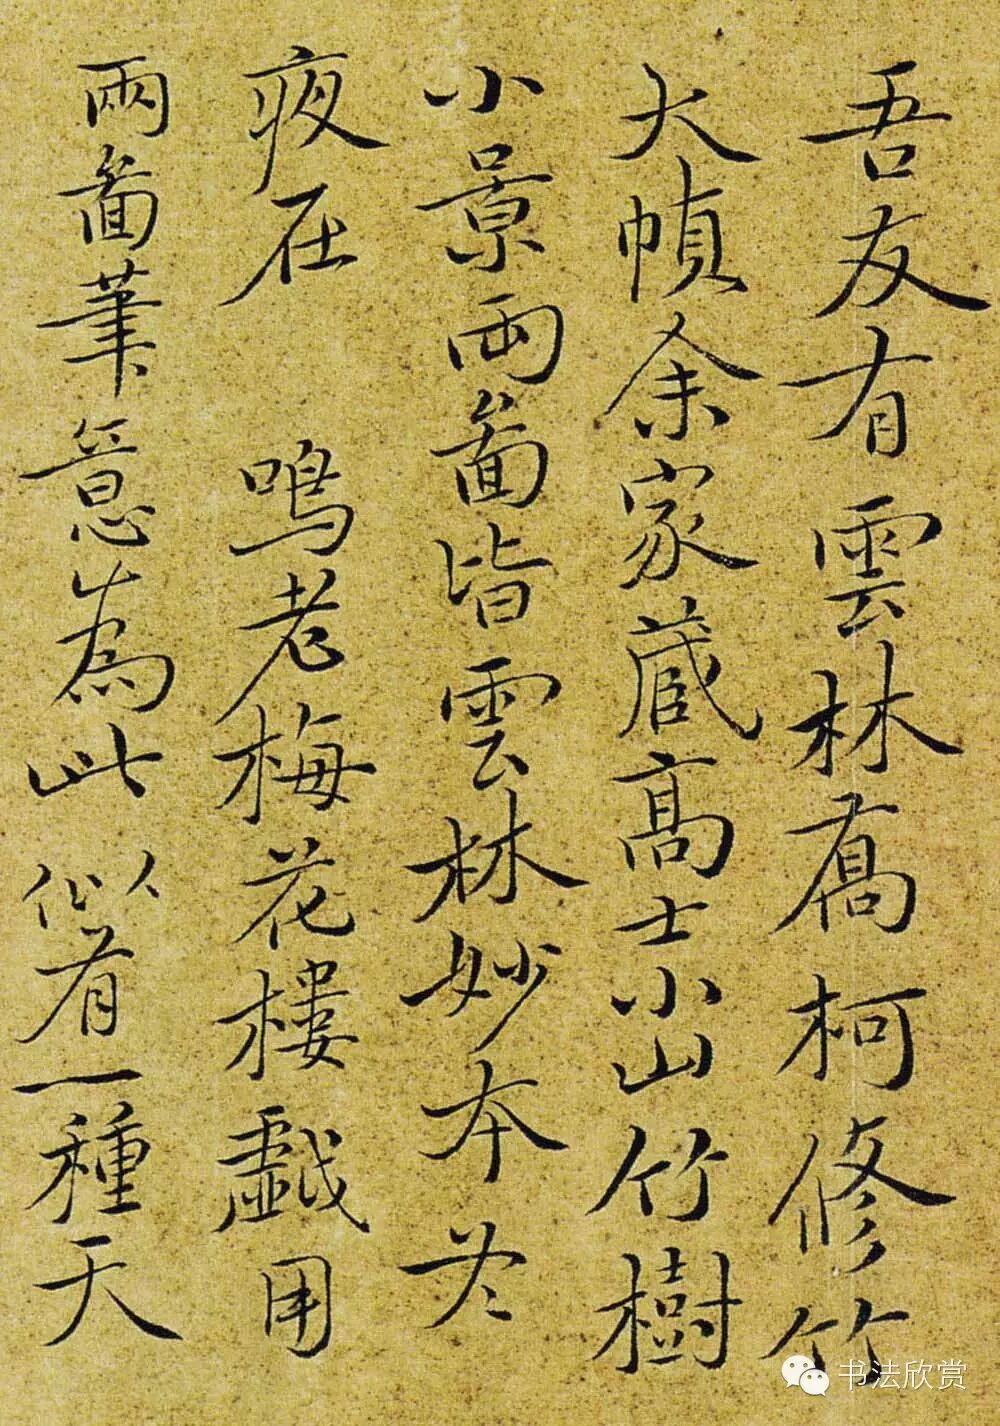 吾友有雲林喬柯修竹
大幀余家藏高士小山竹樹
小景兩箇皆雲林妙本冬
夜在 鳴老梅花樓戲用
兩箇筆意為此似有一種天
书法欣赏